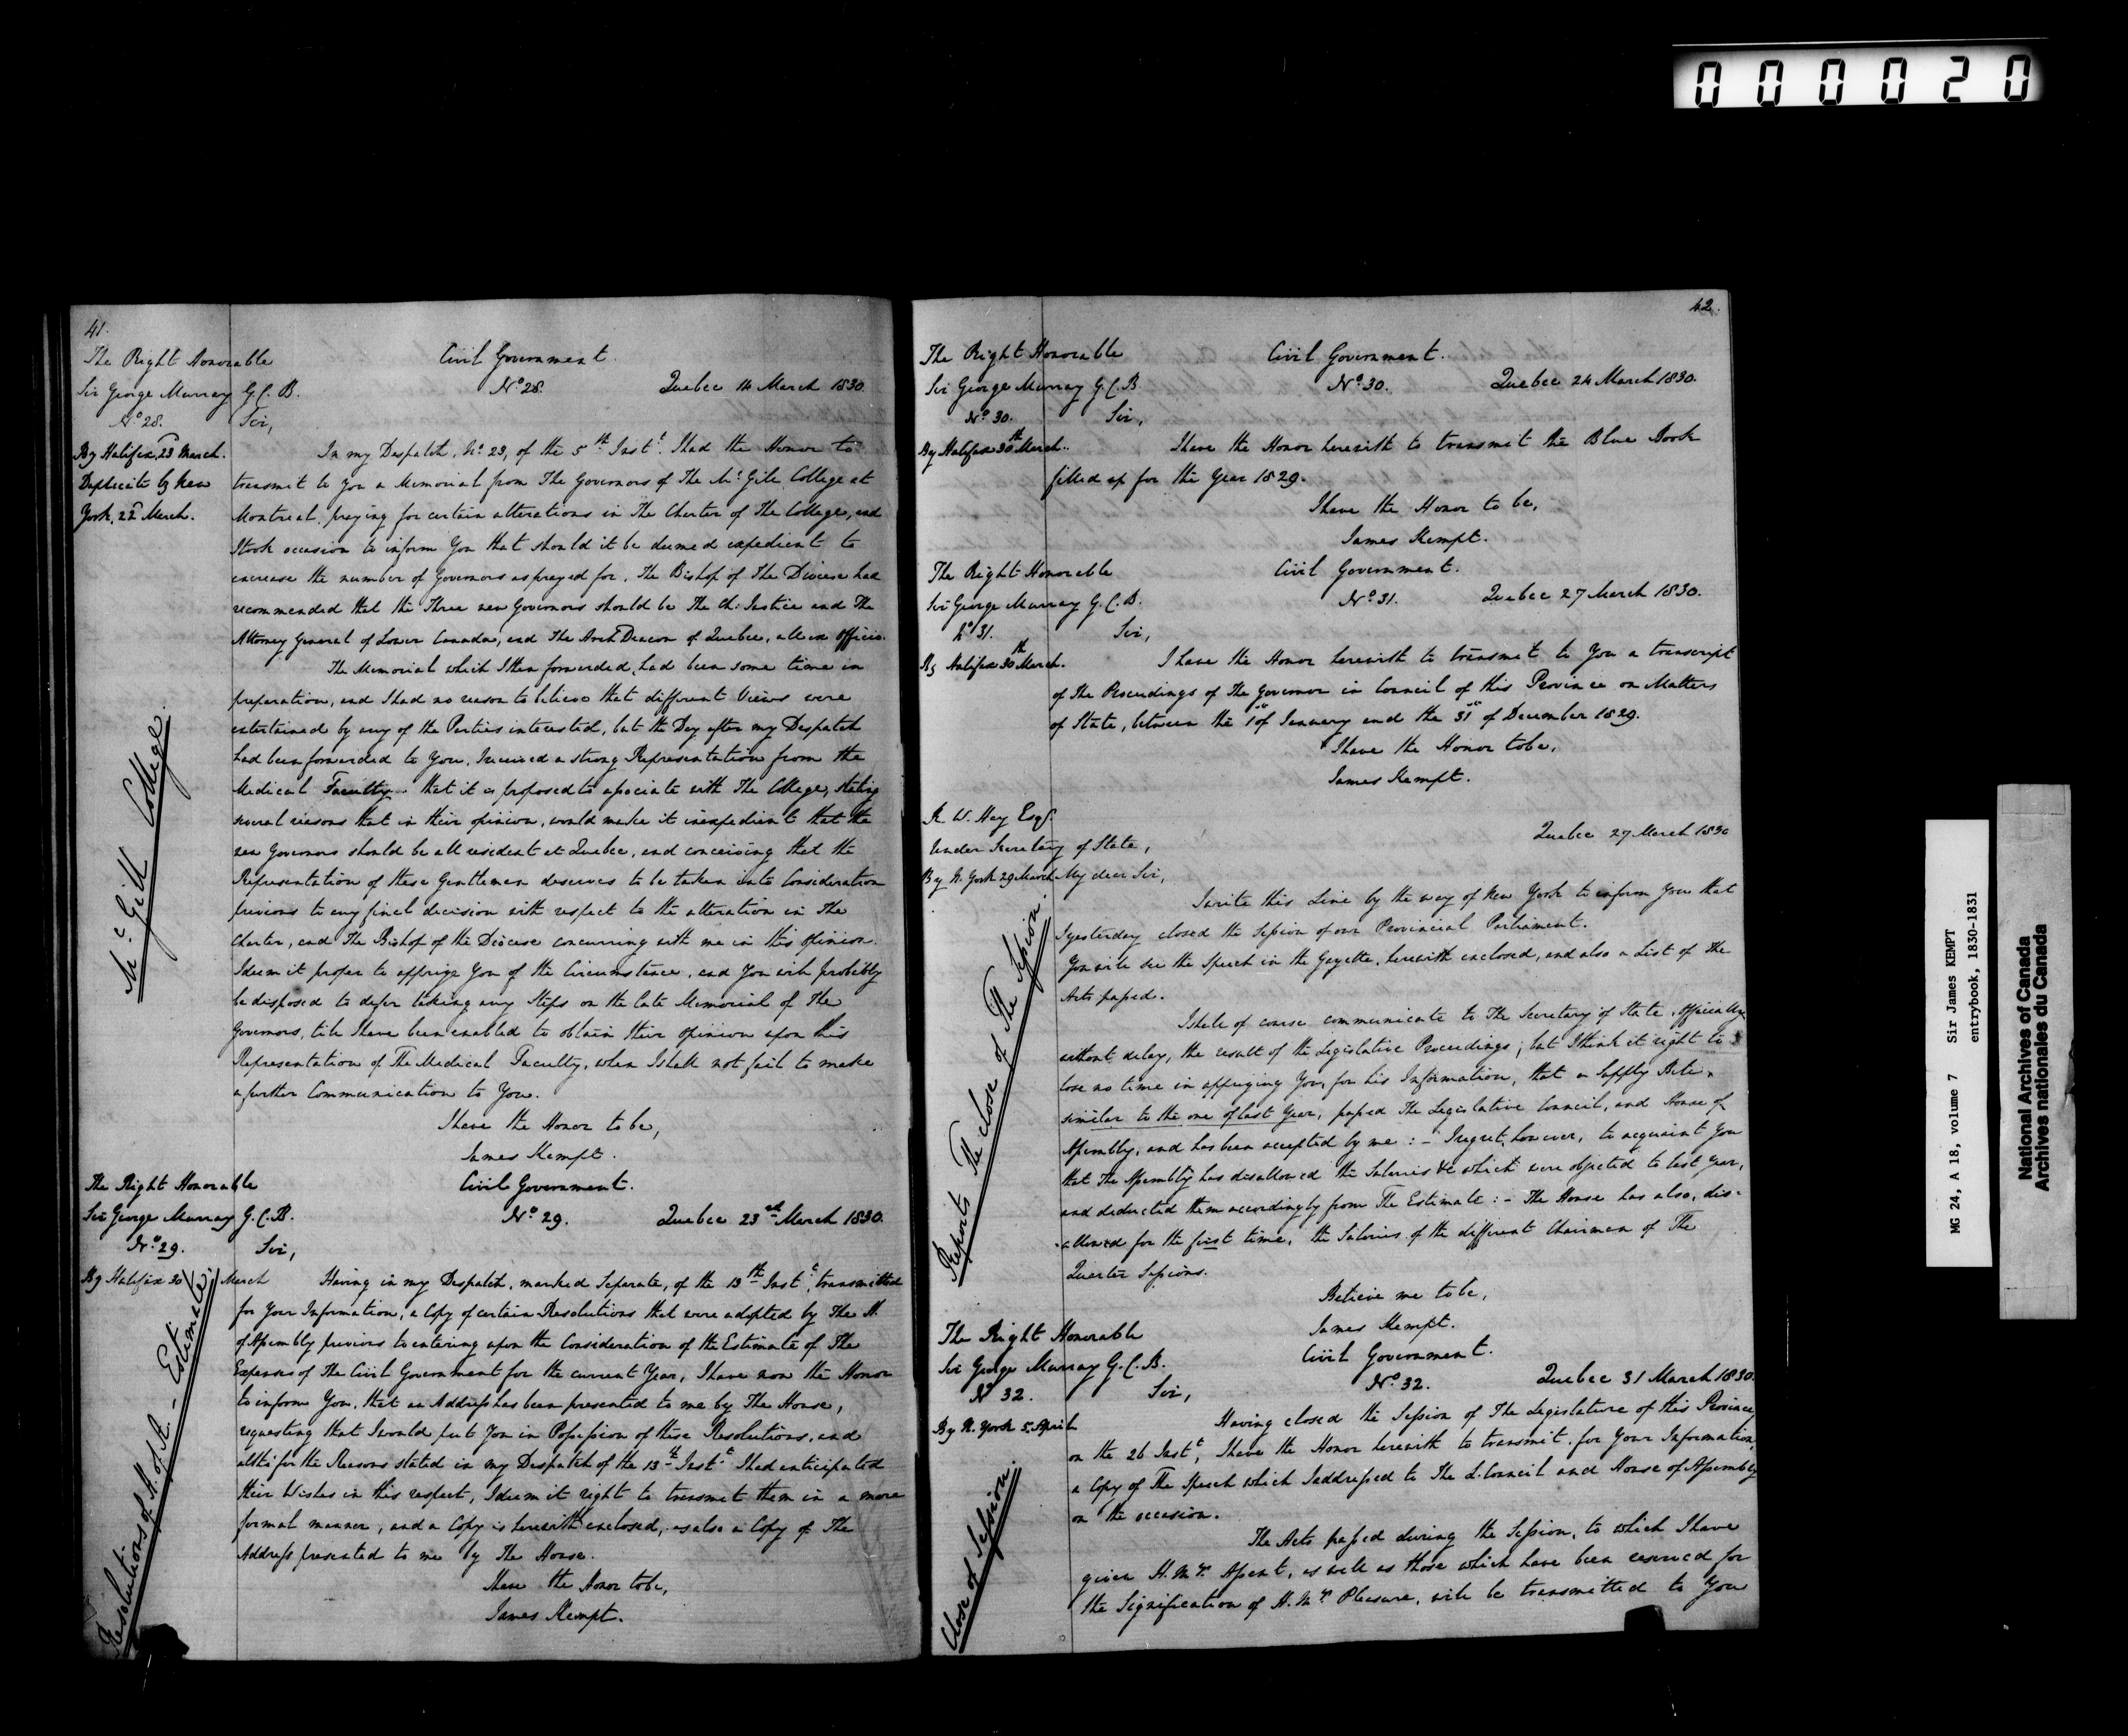 000020
41.
The Right Honorable
Sir George Murray G.C.B.
No 28.
Civil Government.
No 28. Quebec 14 March 1830.
By Halifax, 23 March.
Duplicate by New
York, 22d March.
Mc Gill College.
Sir,
In my Despatch, No. 23, of the 5th Inst. I had the Honor to
transmit to you a Memorial from The Governors of The Mc. Gill College at
Montreal, praying for certain alterations in The Charter of The College, and
I took occasion to inform You that should it be deemed expedient to
encrease the number of Governors as prayed for, The Bishop of The Diocese had
recommended that the Three new Governors should be The Ch: Justice and The
Attorney General of Lower Canada, and The Arch Deacon of Quebec, all ex Officio.
The Memorial which I then forwarded, had been some time in
preparation, and I had no reason to believe that different Views were
entertained by any of the Parties interested, but the Day after my Despatch
had been forwarded to You, I received a strong Representation from the
Medical Faculty that it is proposed to associate with The College, stating
several reasons that in their opinion, would make it inexpedient that the
new Governors should be all resident at Quebec, and conceiving that the
Representation of these Gentlemen deserves to be taken into Consideration
previous to any final decision with respect to the alteration in The
Charter, and The Bishop of the Diocese concurring with me in this Opinion.
I deem it proper to apprize You of the Circumstance, and You will probably
be disposed to defer taking any Steps on the late Memorial of The
Governors, till I have been enabled to obtain their opinion upon this
Representation of The Medical Faculty, when I shall not fail to make
a further Communication to You.
I have the Honor to be,
James Kempt.
The Right Honorable
Sir George Murray G.C.B.
No. 29.
Civil Government.
No 29. Quebec 23rd March 1830.
By Halifax 30 March
Resolutions of H. of A. – Estimate.
Sir,
Having in my Despatch, marked Separate, of the 13th Inst, transmitted
for Your Information, a Copy of certain Resolutions that were adopted by The H.
of Assembly previous to entering upon the Consideration of the Estimate of The
Expenses of The Civil Government for the current Year, I have now the Honor
to inform You, that an Address has been presented to me by The House,
requesting that I would put You in Possession of these Resolutions, and
altho' for the Reasons stated in my Despatch of the 13th Inst. I had anticipated
their Wishes in this respect, I deem it right to transmit them in a more
formal manner, and a Copy is herewith enclosed, as also a Copy of The
Address presented to me by The House.
I have the Honor to be,
James Kempt.
42.
The Right Honorable
Sir George Murray G.C.B.
No. 30.
Civil Government.
No. 30. Quebec 24 March 1830.
By Halifax 30th March.
Sir,
I have the Honor herewith to transmit the Blue Book
filled up for the Year 1829.
I have the Honor to be,
James Kempt.
The Right Honorable
Sir George Murray G.C.B.
No 31.
Civil Government.
No. 31. Quebec 27 March 1830.
By Halifax 30th March.
Sir,
I have the Honor herewith to transmit to You a transcript
of The Proceedings of The Governor in Council of this Province on Matters
of State, between the 1st of January and the 31st of December 1829.
I have the Honor to be,
James Kempt.
R. W. Hay Esqr.
Under Secretary of State,
By N. York 29 March
Quebec 27 March 1830
Reports The close of The Session.
My dear Sir,
I write this Line by the way of New York to inform You that
I yesterday closed the Session of our Provincial Parliament.
You will see the Speech in the Gazette, herewith enclosed, and also a List of The
Acts passed.
I shall of course communicate to The Secretary of State, Officially
without delay, the result of the Legislative Proceedings; but I think it right to
lose no time in apprizing You, for his Information, that a Supply Bill,
similar to the one of last Year, passed The Legislative Council, and House of
Assembly, and has been accepted by me: – I regret, however, to acquaint You
that The Assembly has disallowed the Salaries &c which were objected to last Year,
and deducted them accordingly from The Estimate: – The House has also, dis-
-allowed for the first time, the Salaries of the different Chairmen of The
Quarter Sessions.
Believe me to be,
James Kempt.
The Right Honorable
Sir George Murray G.C.B.
No 32.
Civil Government.
No. 32. Quebec 31 March 1830.
By N. York 5. April
Close of Session.
Sir,
Having closed the Session of The Legislature of this Province,
on the 26 Inst, I have the Honor herewith to transmit, for Your Information,
a Copy of The Speech which I addressed to The L. Council and House of Assembly
on the occasion.
The Acts passed during the Session, to which I have
given H. My. Assent, as well as those which have been reserved for
the Signification of H. My. Pleasure, will be transmitted to You
MG 24, A 18, volume 7 Sir James KEMPT
entrybook, 1830-1831
National Archives of Canada
Archives nationales du Canada